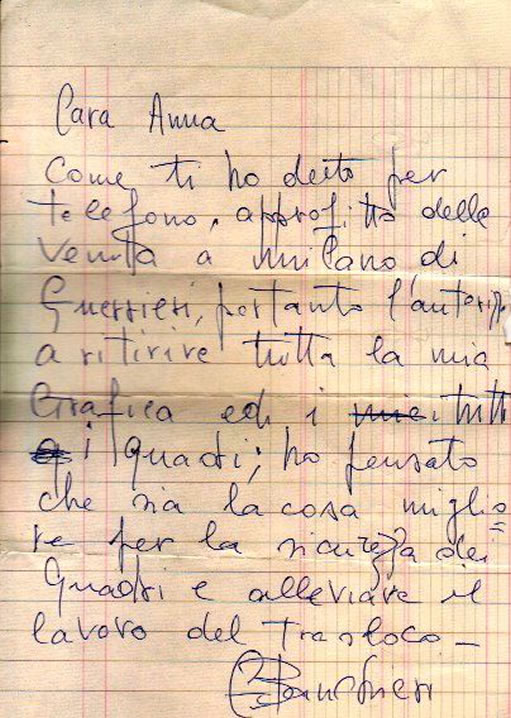 Cara Anna
Come ti ho detto per
telefono, approfitto delle
venuta a Milano di
Guerrieri, pertanto l'autorizzo
a ritirire tutta la mia
Grafica ed i miei tutti
i quadri; ho pensato
che sia la cosa miglio
re per la sicurezza dei
Quadri e alleviare il
lavoro del Trasloco -